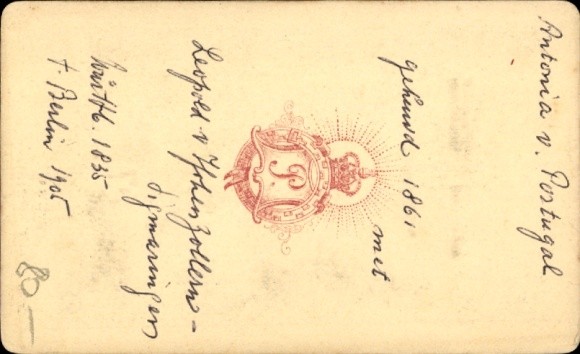 Antonia v. Portugal
gehuwd 1861 met
Leopold v Hohenzollern-
Sigmaringen
1835
t. Berlin 1905
P
80 —